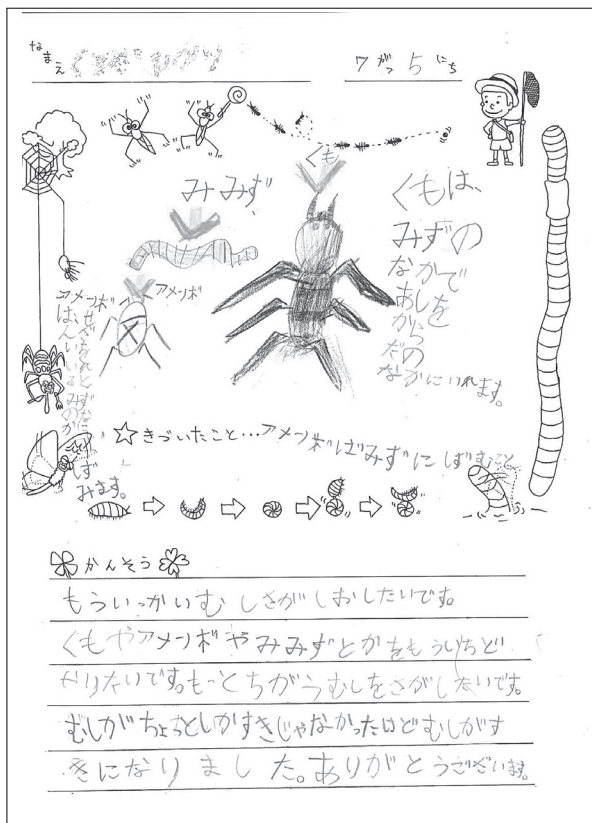 なまえ
7がつ5にち
くも
みみず
アメンボ
くもは、
みずの
なかで
あしを
からだの
なかにいれます。
アメンボは、
しずみます。
☆きづいたこと…アメンボはみずにしずむこと
かんそう
もういっかいむしさがしおしたいです。
くもやアメンボやみみずとかをもういちど
やりたいです。もっとちがうむしをさがしたいです。
むしがちょっとしかすきじゃなかったけどむしがす
きになりました。ありがとうございます。